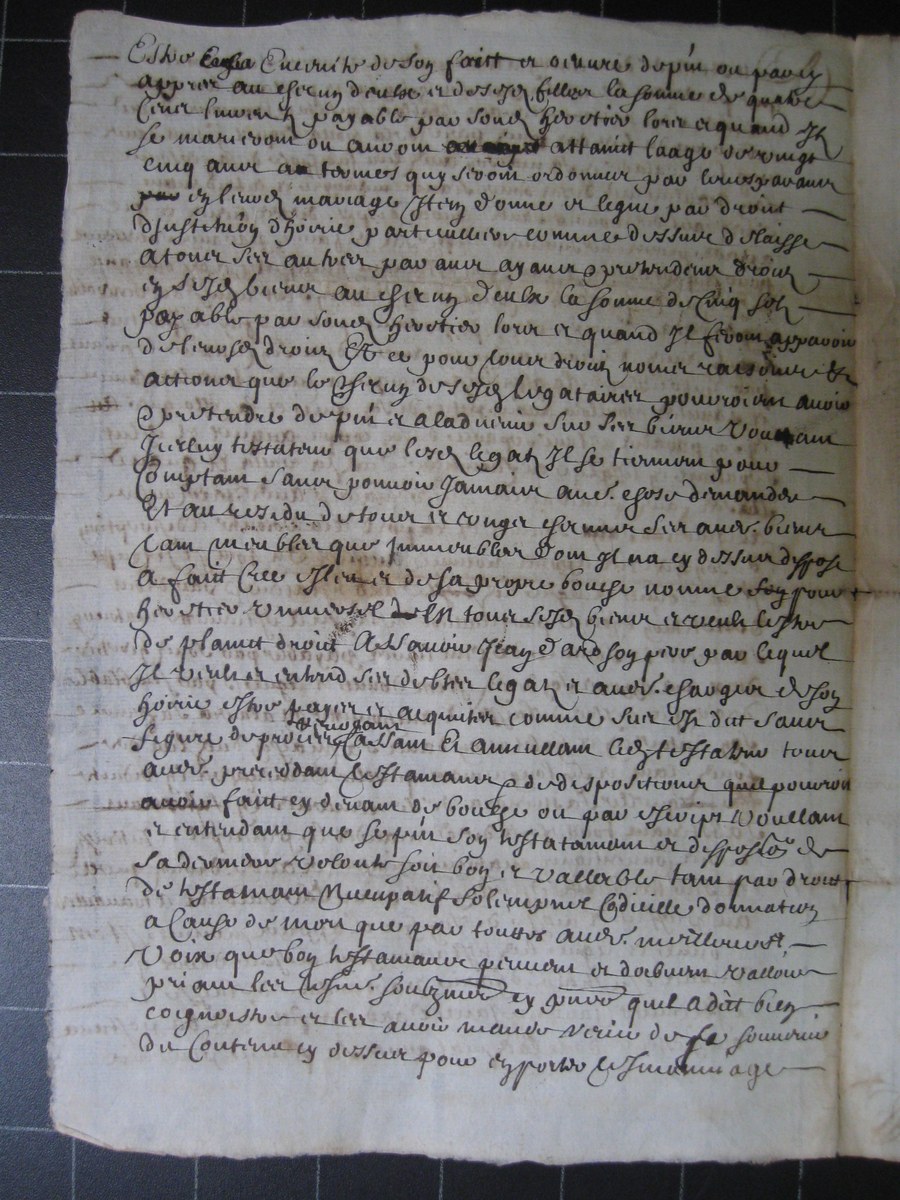 Estre Enceinte de son faict et oeuvre de pnt ou par cy
appres au chescung deulx et desd filles la somme de quatre
Cens livres payable par sond heretier lors et quand Ilz
se marieront ou auront attainct laage de vingt
cinq ans a termes quy seront ordonnes par leurs parans
en leurd mariage Item donne et legue par droit
dinstitution dhoirie particulliere comme dessus delaisse
a tous ses aultres parans ayans et pretendens droict
en sesd biens au chescung deulx la somme de Cinq solz
payable par sond heretier lors et quand Il feront apparoir
de leursd droicz Et ce pour tous droicz noms raisons et
actions que le chescung desesd legataires pourroient avoir
et pretendre de pnt et a ladvenir sur ses biens Voullant
Icelluy testateur que lesd legatz Il se tiennent pour
Comptam sans pouvoir Jamais aultre chose demander
Et au residu de tous et conges chescungs ses aultres biens
tam meubles que Immeubles dont Il na cy dessus dispose
a faict Cree esleu et de sa propre bouche nomme son pour
heretier universel En tous sesd biens et veult estre
de plainct droict Assavoir Jean dard son pere par lequel
Il veult et entend ses debtes legatz et aultres charges de son
hoirie estre payes et acquictes comme sus est dict sans
figure de proces Cassant Et annullant led testateur tous
aultres precedam testamans et dedispositions quil pourroit
avoir faict cy devant de bouche ou par escript Voullant
et entendam que le pnt son testatamant et disposion de
sa derniere volonte soit bon et vallable tam par droict
de testamant Nuncupatif solempnel Codicille donnation
a Cause de mort que par touttes aultres meilleures
Voix que bon testamans peuvent et doibvent valloir
priant les tesmoings soubznomes cy pntz quil a dict bien
coignoistre et les avoir mande venir de se souvenir
du Contenu cy dessus pour en porter tesmoinniage